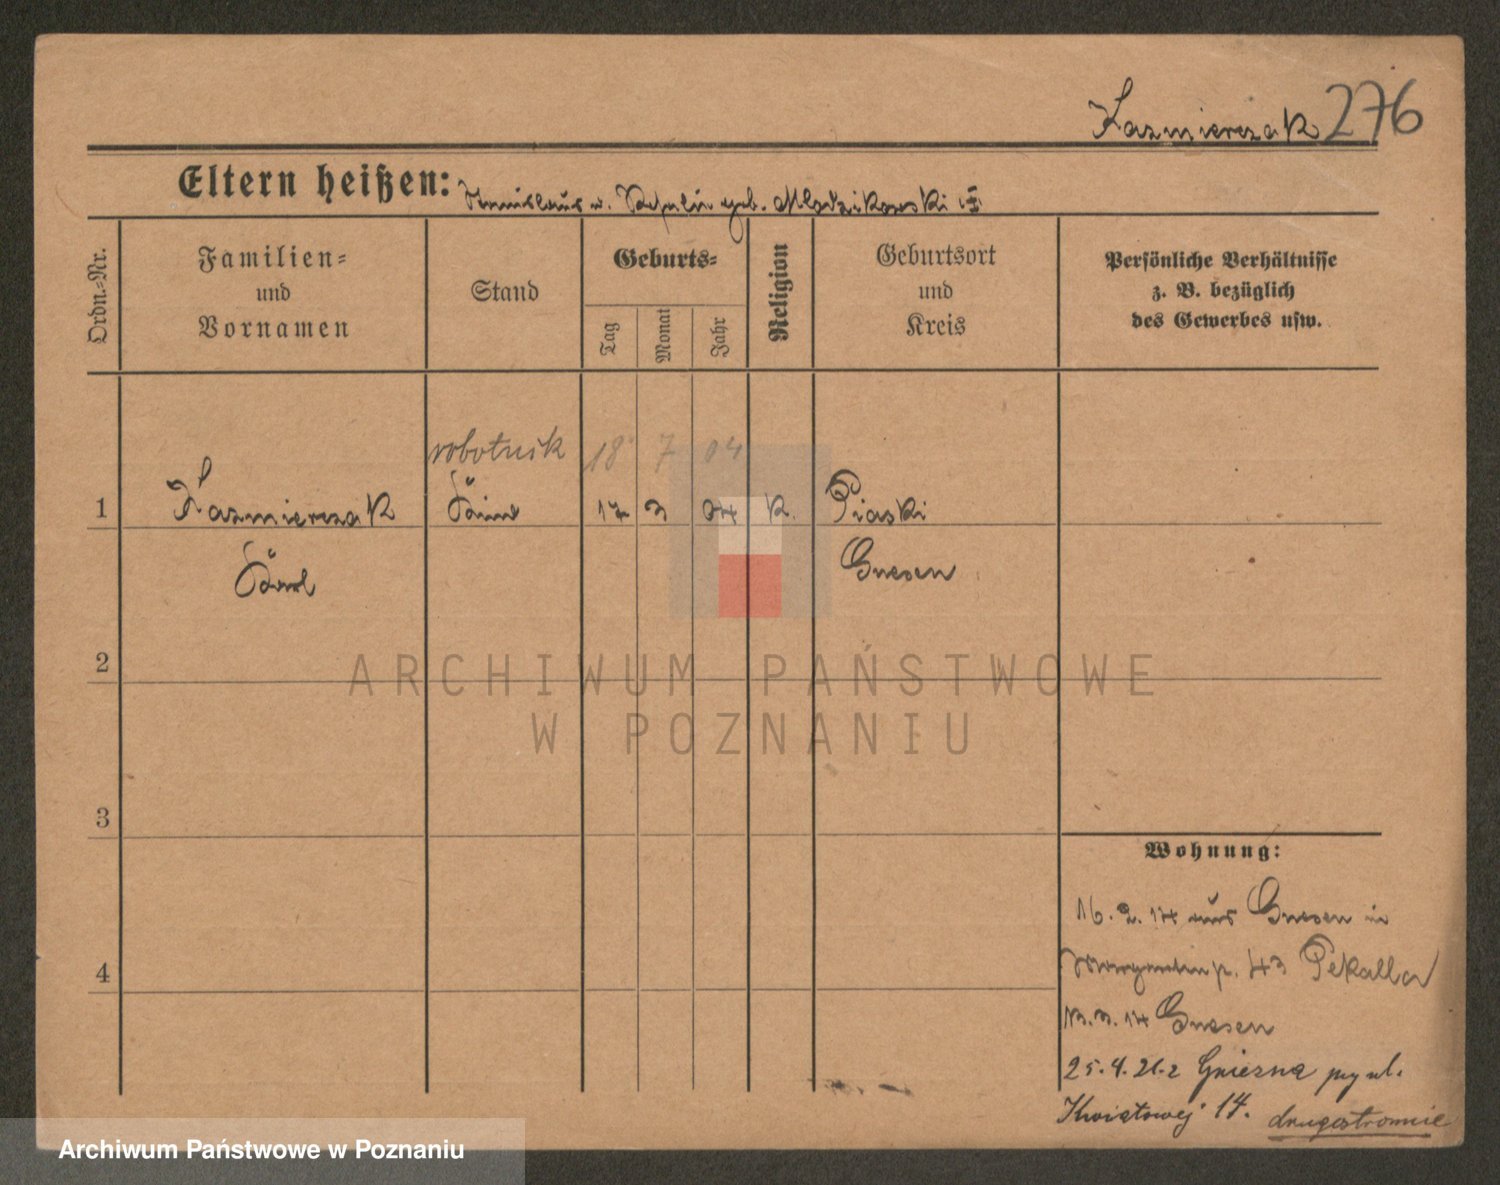 Kazmierczak 276
Eltern heißen: Stanislaus u. geb. Mlodzikowski
Ordn.-Nr.
Familien-
und
Vornamen
Stand
Geburts-
Tag
Monat
Jahr
Religion
Geburtsort
und
Kreis
Persönliche Verhältnisse
z. B. bezüglich
des Gewerbes usw.
robotnik 18 7 04
1 Kazmierczak 17 3 04 K. Piaski
Gnesen
2
ARCHIWUM PAŃSTWOWE
W POZNANIU
3
4
Wohnung:
16. 2. 14 aus Gnesen in
43 Pekalla
13. 3. 14 Gnesen
25.4.21 z Gniezna przy ul.
Kwiatowej 14. drugostronnie
Archiwum Państwowe w Poznaniu